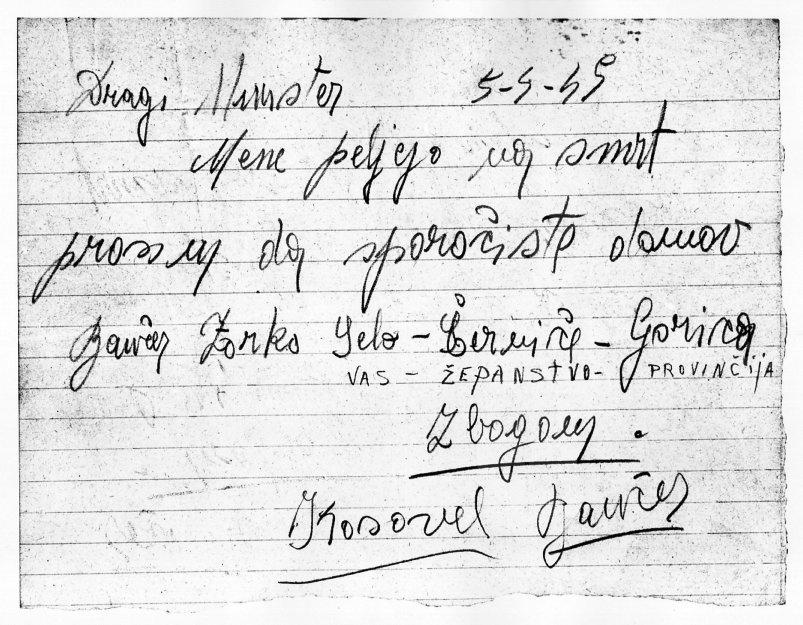 Dragi Minister 5-4-45
Mene peljejo na smrt
prosim da sporočiste domov
Bavčer Zorko Selo - Černiče - Gorica
VAS - ŽEPANSTVO - PROVINČIJA
Zbogom.
Kosovel Bavčer